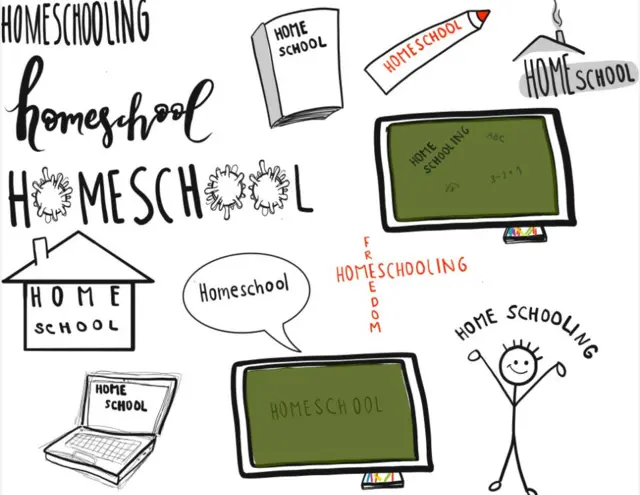 HOMESCHOOLING
HOME
SCHOOL
HOMESCHOOL
HOMESCHOOL
homeschool
HOMESCHOOL
HOME
SCHOOLING
ABC
HOME
SCHOOL
Homeschool
FREEDOM
HOMESCHOOLING
HOME SCHOOLING
HOME
SCHOOL
HOMESCHOOL